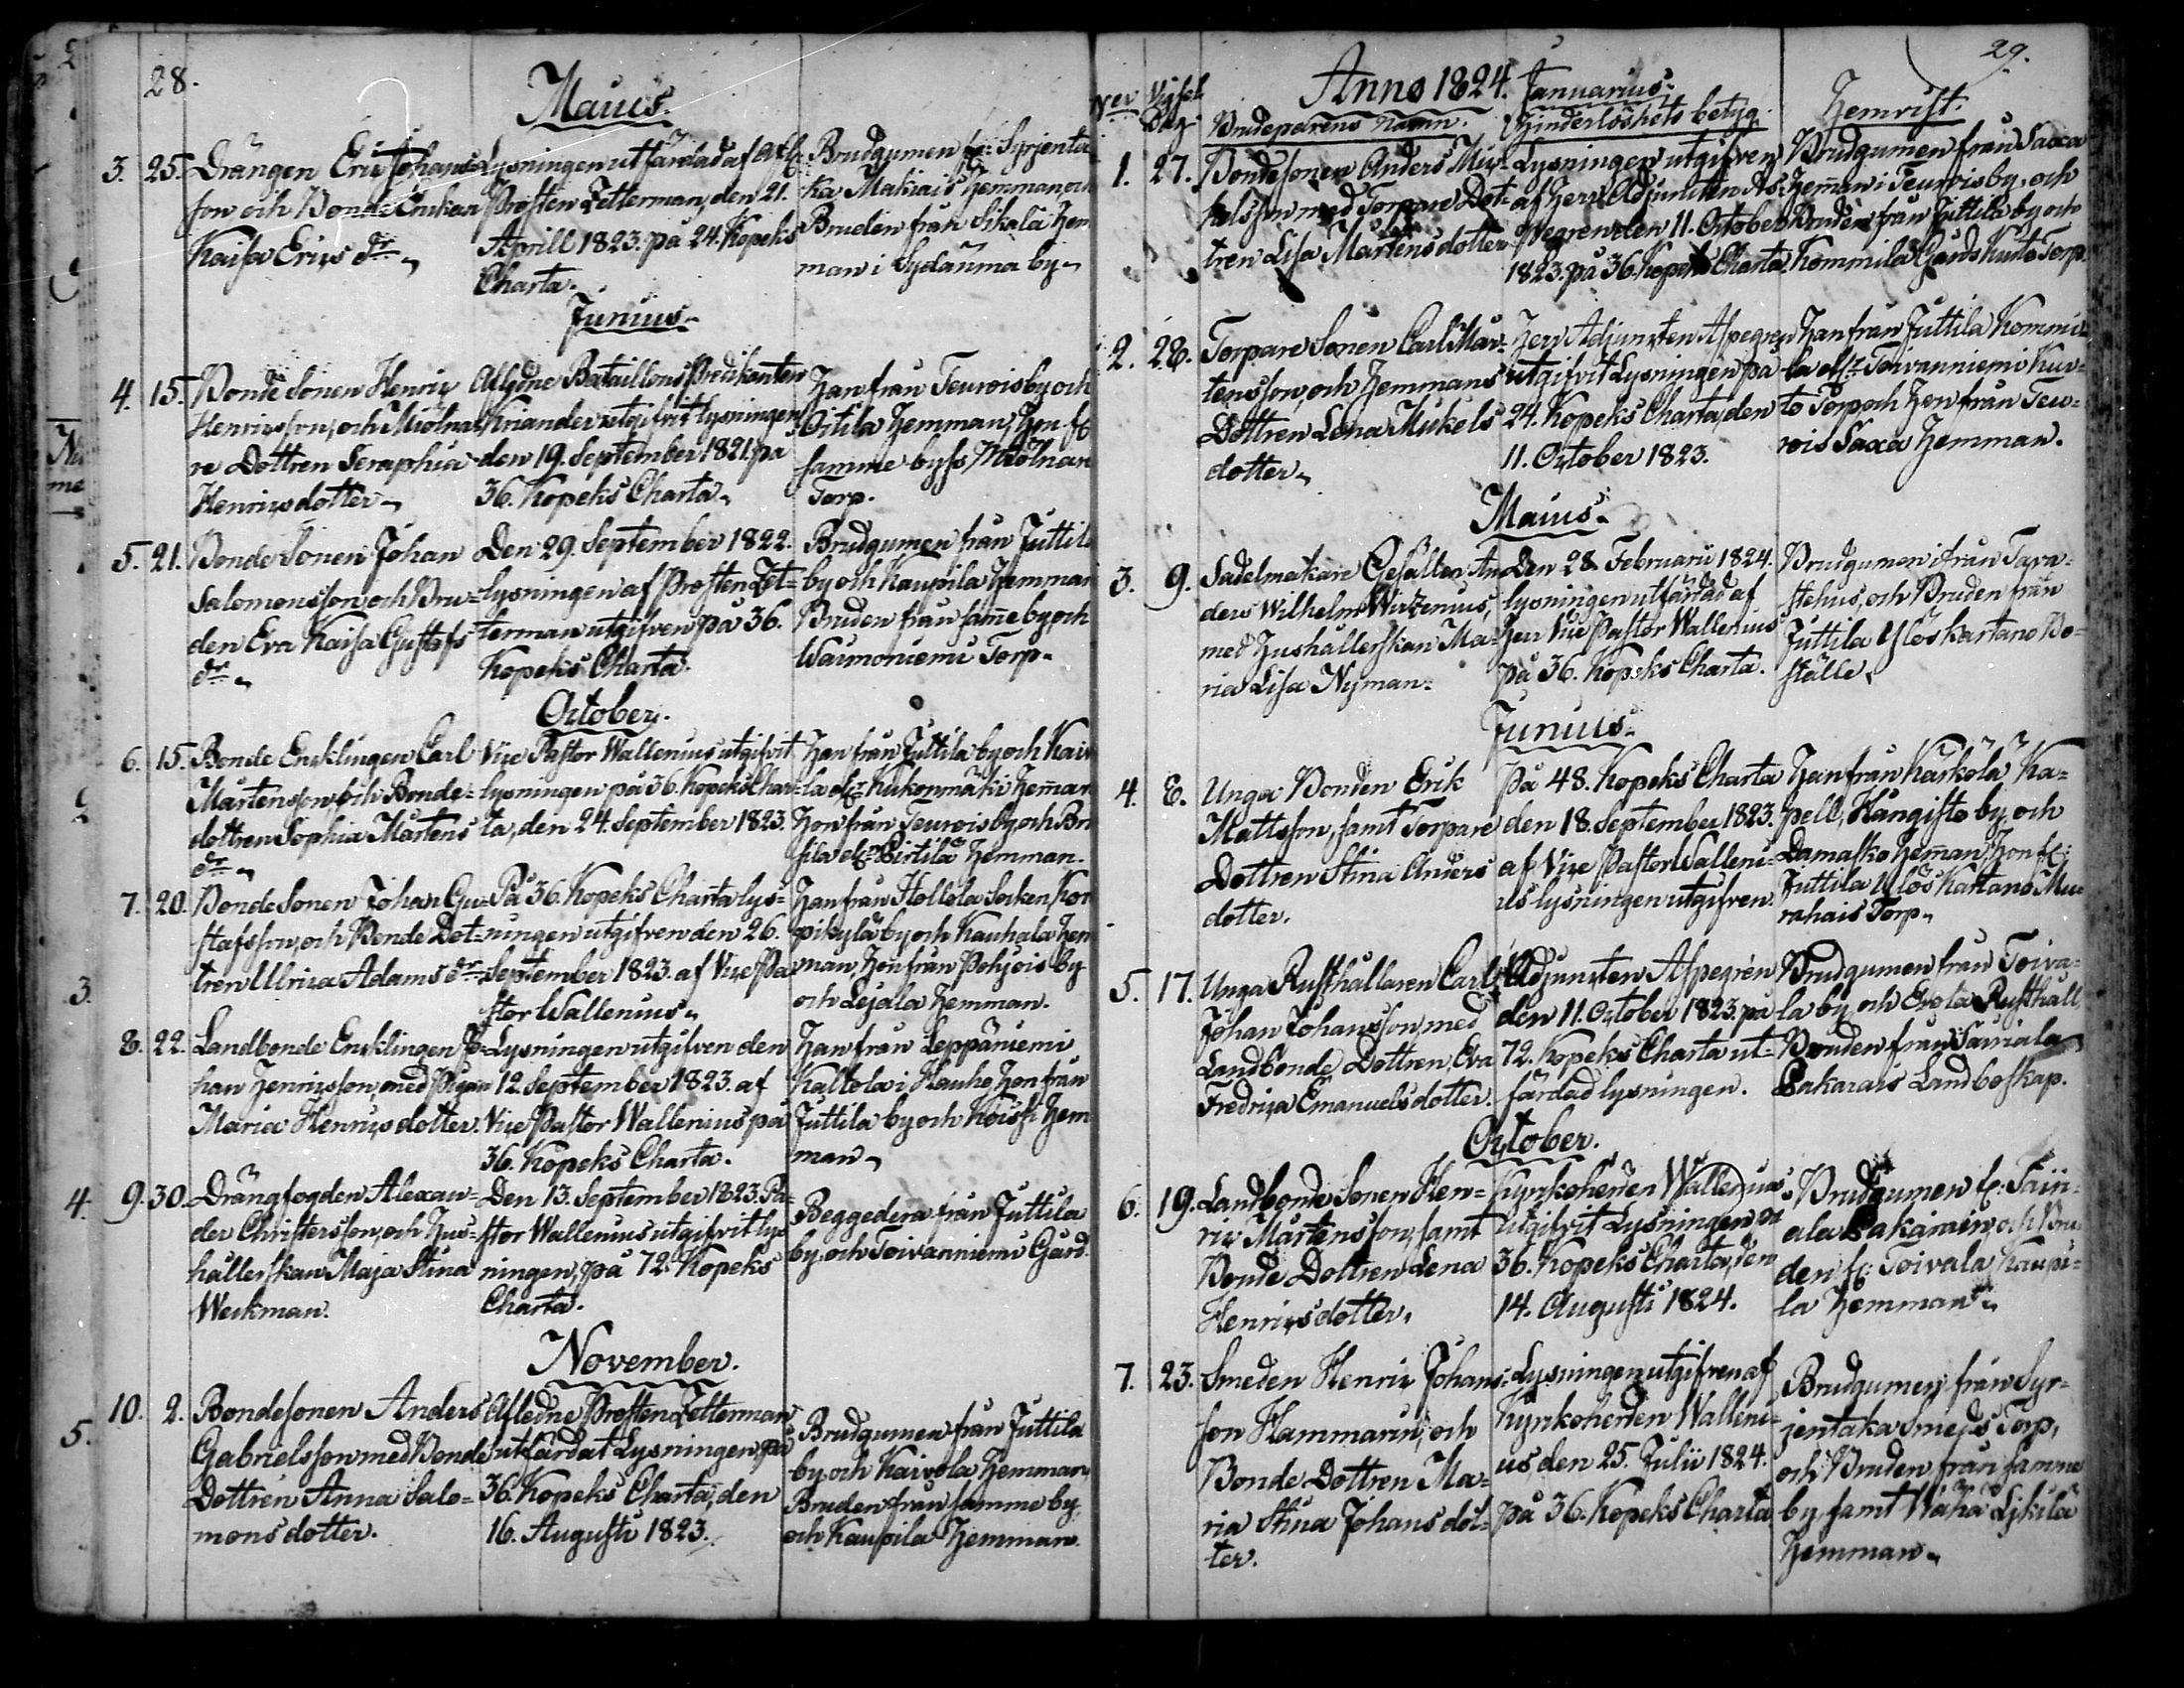 28.
Maius.
3. 25. Drängen Eric Johans-
son och Bonde Enkan
Kaisa Erics dr
Lysningen utfärdad af afl:
Prosten Zetterman, den 21.
Aprill 1823. på 24. Kopeks
Charta.
Brudgumen fr: Syrjenta
ka Makiais Hemman, och
Bruden från Sikala Hem
man i Sydänma by
Junius
4. 15. Bonde Sonen Henric
Henricsson, och Miölna-
re Dottren Seraphia
Henricsdotter
Aflidne Bataillons Predikanten
Kiriander utgifvit lysningen
den 19. September 1821. på
36. Kopeks Charta
Han från Teurois by och
Oitila Hemman, Hon fr
samme bys, Miölnare
Torp.
5. 21. Bonde Sonen Johan
Salomonsson, och Bru-
den Eva Kaisa Gustafs
dr
Den 29. September 1822.
lysningen af Prosten Zet-
terman utgifven på 36.
Kopeks Charta.
Brudgumen från Juttila
by och Kaupila Hemman
Bruden från samme by, och
Waimoniemi Torp
October.
6. 15. Bonde Encklingen Carl
Mårtensson, och Bonde-
dottren Sophia Mårtens
dr
Vice Pastor Wallenius utgifvit
lysningen på 36. Kopeks Char-
ta, den 24. September 1823.
Han från Juttila by och Kaiv
la elr Kukonmäki Hemman
Hon från Teurois by och
sila elr Pirtilä Hemman.
7. 20. Bonde Sonen Johan Gu-
stafsson, och Bonde Dot-
tren Ulrica Adams dr
På 36. Kopeks Charta lys-
ningen utgifven den 26.
September 1823. af Vice Pa
stor Wallenius
Han från Hollola Socken, Kor
pikylä by och Kauhala Hem
man, Hon från Pohjois by
och Lejala Hemman.
8. 22. Landbonde Encklingen Jo-
han Henricsson, med Pigan
Maria Henricsdotter.
Lysningen utgifven den
12. September 1823. af
Vice Pastor Wallenius på
36. Kopeks Charta.
Han från Leppäniemi
Kaltola i Hauho, Hon från
Juttila by och Hem
man
9. 30. Drängfogden Alexan-
der Christersson, och Hus-
hållerskan Maja Stina
Weckman.
Den 13. September 1823. Pa-
stor Wallenius utgifvit lys
ningen, på 72. Kopeks
Charta.
Beggedera från Juttila
by och Toivanniemi Gård
November.
10. 2. Bondesonen Anders
Gabrielsson med Bonde
Dottren Anna Salo-
mons dotter.
Aflidne Prosten Zetterman
utfärdat Lysningen på
36. Kopeks Charta, den
16. Augusti 1823.
Brudgumen från Juttila
by och Kaivola Hemman,
Bruden från samme by
och Kaupila Hemman.
29.
Anno 1824. Januarius.
Ner Vigsel Dag Brudeparens Namn. Hinderlöshets betyg. Hemvist.
1. 27. Bondesonen Anders Mic-
kelsson med Torpare Dot-
tren Lisa Mårtens dotter
Lysningen utgifven
af Herr Adjuncten As-
pegren den 11. October
1823. på 36. Kopeks Charta
Brudgumen från Saxa
Hemman i Teurois by, och
Bruden från Juttila by och
Kommila Gårds Kuito Torp.
2. 28. Torpare Sonen Carl Mår-
tensson, och Hemmans
Dottren Lena Mickels
dotter
Herr Adjuncten Aspegren
utgifvit Lysningen på
24. Kopeks Charta, den
11. October 1823.
Han från Juttila Kommi-
la elr Toivanniemi Kui-
to Torp och Hon från Teu-
rois Saxa Hemman.
Maius.
3. 9. Sadelmakare Gesällen An
ders Wilhelm Wirzenius,
med Hushållerskan Ma-
ria Lisa Nyman.
Den 28. Februarii 1824.
lysningen utfärdad af
Herr Vice Pastor Wallenius
på 36. Kopeks Charta.
Brudgumen ifrån Tava-
stehus, och Bruden från
Juttila Ylöskartano Bo-
ställe
Junius.
4. 8. Unga Bonden Erik
Mattsson, samt Torpare
Dottren Stina Anders
dotter.
På 48. Kopeks Charta
den 18. September 1823.
af Vice Pastor Walleni-
us lysningen utgifven.
Han från Kärkölä Ka-
pell, Hångisto by, och
Damasko Hemman, Hon fr:
Juttila Ylös Kartano Mu
rahais Torp
5. 17. Unga Rusthållaren Carl
Johan Johansson, med
Landbonde Dottren Eva
Fredrica Emanuelsdotter.
Adjuncten Aspegren
den 11. October 1823. på
72. Kopeks Charta ut-
färdad lysningen.
Brudgumen från Toiva-
la by, och Evola Rusthåll,
Bruden från Sairiala
Lakarais Landboskap.
October.
6. 19. Landbonde Sonen Hen-
ric Mårtensson, samt
Bonde Dottren Lena
Henricsdotter.
Kyrkoherden Wallenius
utgifvit Lysningen på
36. Kopeks Charta, den
14. Augusti 1824.
Brudgumen fr: Sairi-
ala Lakarais, och Bru
den fr: Toivala Kaupi-
la Hemman
7. 23. Smeden Henric Johans-
son Hammarin, och
Bonde Dottren Ma-
ria Stina Johans dot-
ter.
Lysningen utgifven af
Kyrkoherden Walleni-
us, den 25. Julii 1824.
på 36. Kopeks Charta
Brudgumen från Syr-
jentaka Smeds Torp,
och Bruden från samma
by, samt Wähä Lykilä
Hemman